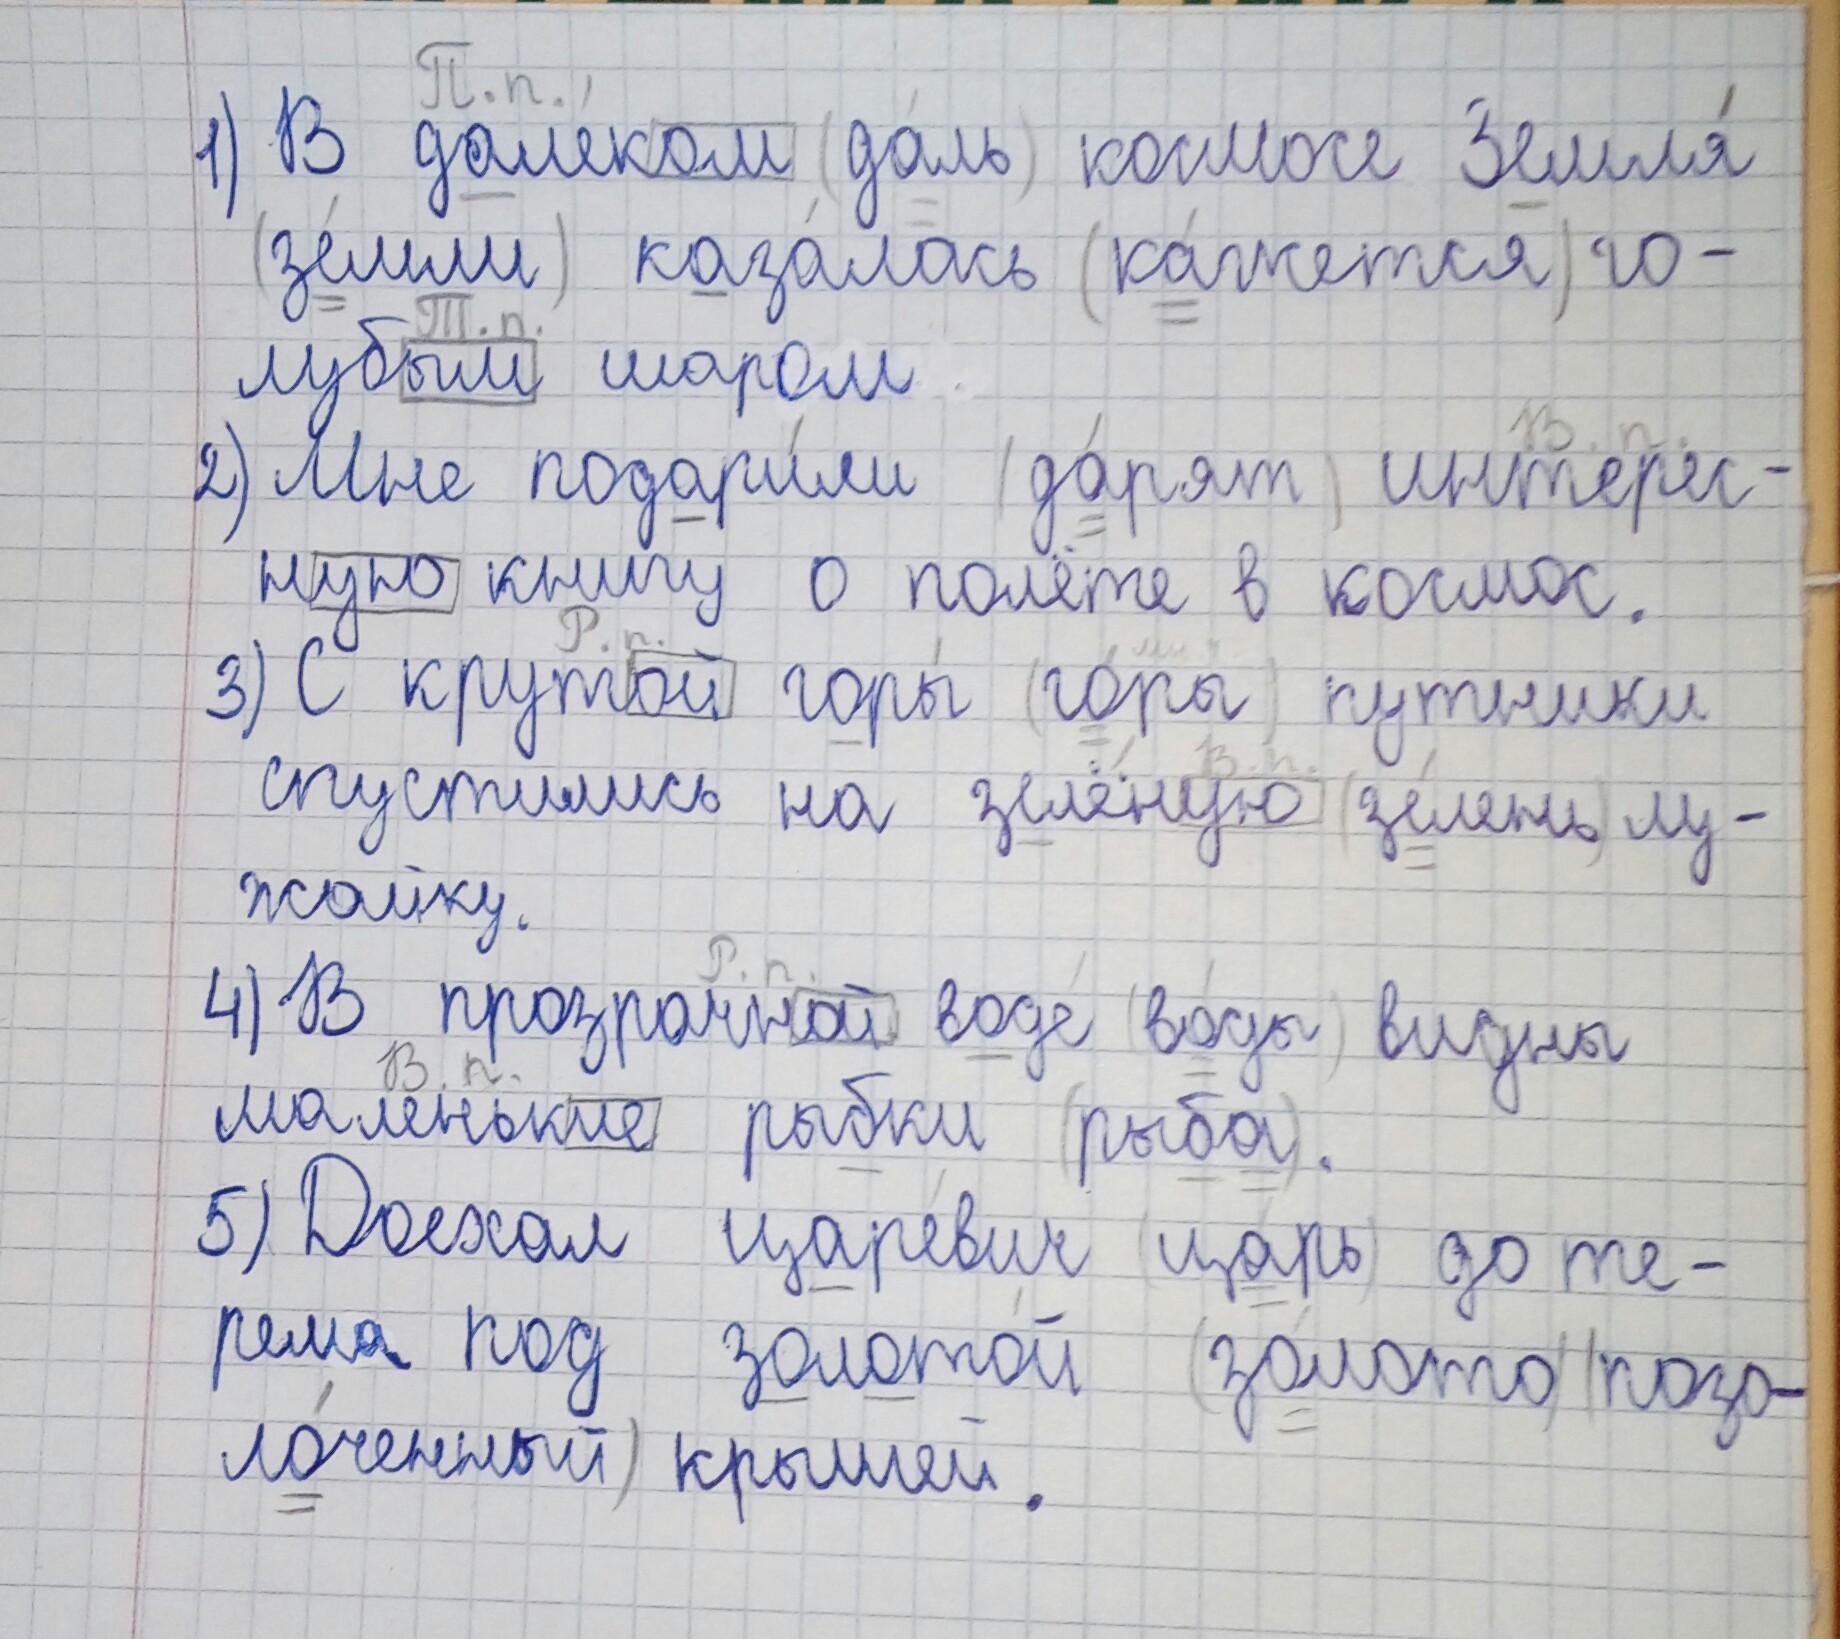 П.п.
1) В далёком (даль) космосе Земля
(земли) казалась (кажется) го-
Т.п.
лубым шаром
В.п.
2) Мне подарили (дарят) интерес-
ную книгу о полёте в космос.
Р.п.
3) С крутой горы (горы) путники
В.п.
спустились на зелёную (зелень) лу-
жайку.
Р.п.
4) В прозрачной воде (воды) видны
В.п.
маленькие рыбки (рыба).
5) Доехал царевич (царь) до те-
рема под золотой (золото) (позо-
лоченный) крышей.